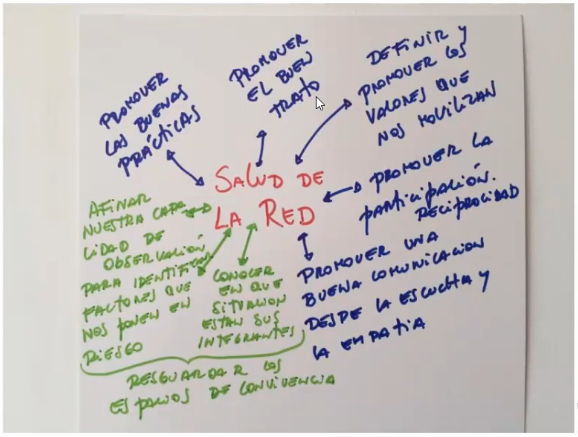 PROMOVER
LAS BUENAS
PRÁCTICAS
PROMOVER
EL BUEN
TRATO
DEFINIR Y
PROMOVER LOS
VALORES QUE
NOS MOVILIZAN
SALUD DE
LA RED
PROMOVER LA
PARTICIPACIÓN.
RECIPROCIDAD
PROMOVER UNA
BUENA COMUNICACION
DESDE LA ESCUCHA Y
LA EMPATIA
AFINAR
NUESTRA CAPA
CIDAD DE
OBSERVACIÓN
PARA IDENTIFICAR
FACTORES QUE
NOS PONEN EN
RIESGO
CONOCER
EN QUE
SITUACION
ESTAN SUS
INTEGRANTES
RESGUARDAR LOS
ESPACIOS DE CONVIVENCIA